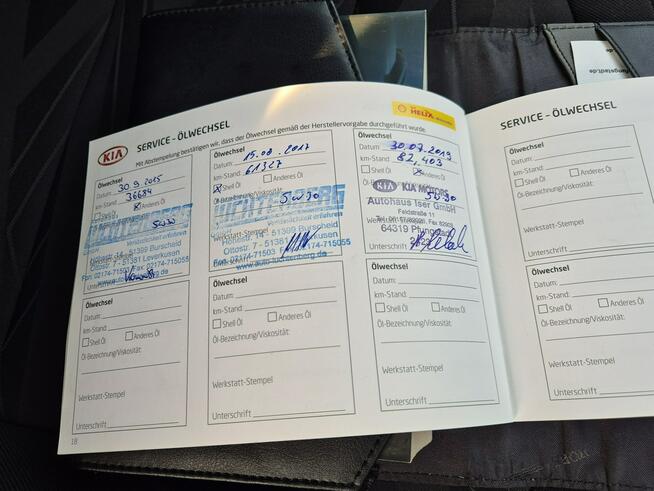 KIA
SERVICE - ÖLWECHSEL
HELIX
Mit Abstempelung bestätigen wir, dass der Ölwechsel gemäß der Herstellervorgabe durchgeführt wurde.
Ölwechsel
Datum 30.9.2015
km-Stand 36684
Shell Öl Anderes Öl
5W30
51399 Burscheid
Ottostr. 7 - 51381 Leverkusen
Fon: 02174-715055
Ölwechsel
Datum 15.08.2017
km-Stand 61327
Shell Öl Anderes Öl
Öl-Bezeichnung/Viskosität
5W30
Werkstatt-Stempel
51399 Burscheid
Ottostr. 7 - 51381 Leverkusen
Fax: 02174-715055
Unterschrift
Ölwechsel
Datum 30.07.2019
km-Stand 82,403
Shell Öl Anderes Öl
Öl-Bezeichnung/Viskosität
KIA KIA MOTORS
5W30
Autohaus Iser GmbH
Feldstraße 11
64319 Pfungstadt
Unterschrift
Ölwechsel
Datum:
km-Stand:
Shell Öl Anderes Öl
Öl-Bezeichnung/Viskosität:
Werkstatt-Stempel
Unterschrift
Ölwechsel
Datum:
km-Stand:
Shell Öl Anderes Öl
Öl-Bezeichnung/Viskosität:
Werkstatt-Stempel
Unterschrift
Ölwechsel
Datum:
km-Stand:
Shell Öl Anderes Öl
Öl-Bezeichnung/Viskosität:
Werkstatt-Stempel
Unterschrift
18
SERVICE - ÖLWECHSEL
Ölwechsel
Datum:
km-Stand:
Shell Öl Anderes Öl
Öl-Bezeichnung/Viskosität:
Werkstatt-Stempel
Unterschrift
Ölwechsel
Datum:
km-Stand:
Shell Öl Anderes
Öl-Bezeichnung/Viskosität:
Werkstatt-Stempel
Unterschrift